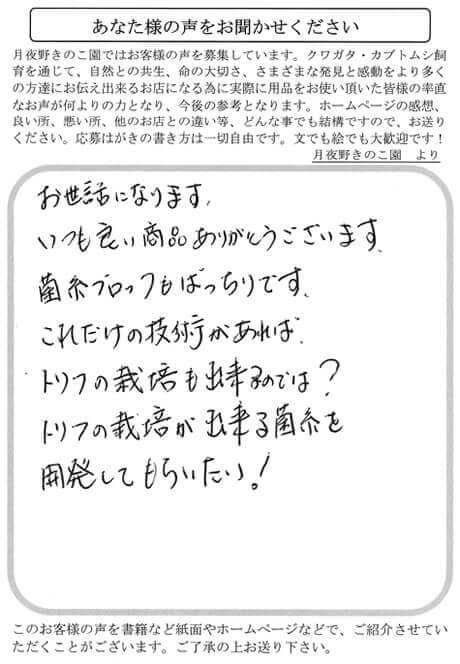 あなた様の声をお聞かせください
月夜野きのこ園ではお客様の声を募集しています。クワガタ・カブトムシ飼
育を通じて、自然との共生、命の大切さ、さまざまな発見と感動をより多く
の方達にお伝え出来るお店になる為に実際に用品をお使い頂いた皆様の率直
なお声が何よりの力となり、今後の参考となります。ホームページの感想、
良い所、悪い所、他のお店との違い等、どんな事でも結構ですので、お送り
ください。応募はがきの書き方は一切自由です。文でも絵でも大歓迎です！
月夜野きのこ園　より
お世話になります。
いつも良い商品ありがとうございます。
菌糸ブロックもばっちりです。
これだけの技術があれば、
トリフの栽培も出来るのでは？
トリフの栽培が出来る菌糸を
開発してもらいたい！
このお客様の声を書籍など紙面やホームページなどで、ご紹介させてい
ただくことがございます。ご了承の上お送り下さい。